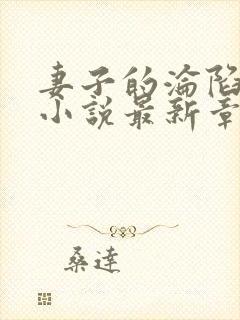 妻子的淪陷
小說最新章
桑達